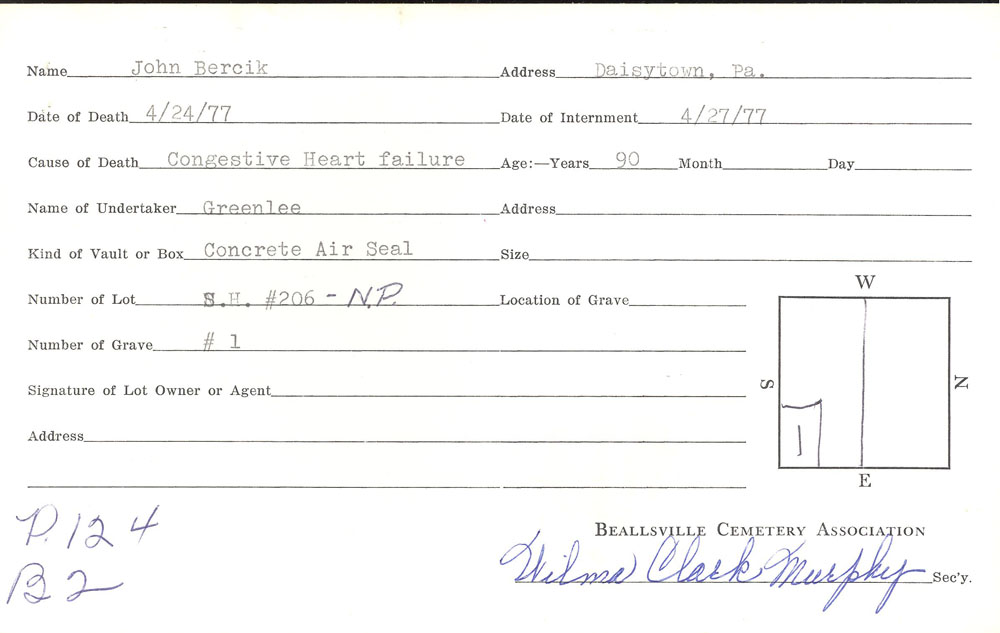 Name John Bercik Address Daisytown, Pa.
Date of Death 4/24/77 Date of Internment 4/27/77
Cause of Death Congestive Heart failure Age:—Years 90 Month Day
Name of Undertaker Greenlee Address
Kind of Vault or Box Concrete Air Seal Size
Number of Lot S.H. #206 - N.P. Location of Grave
Number of Grave # 1
Signature of Lot Owner or Agent
Address
W
S
N
1
E
P. 124
B2
BEALLSVILLE CEMETERY ASSOCIATION
Wilma Clark Murphy Sec'y.